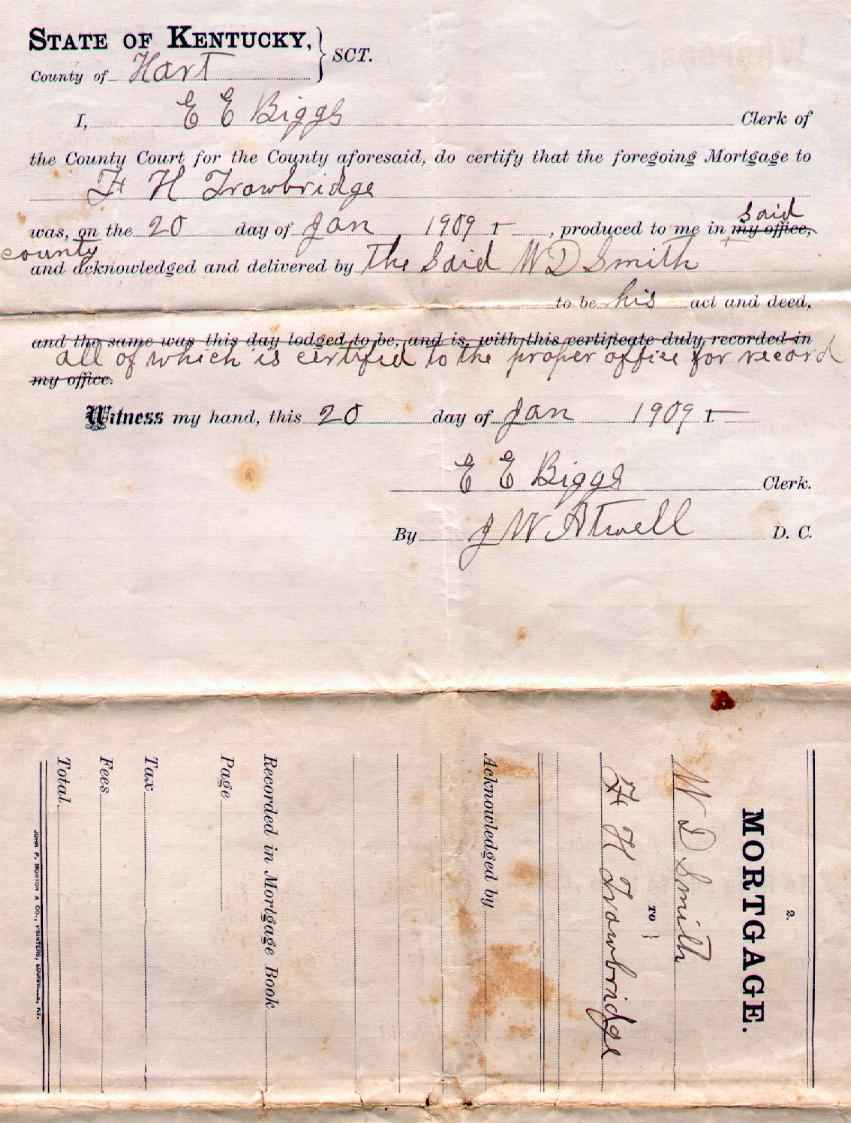 STATE OF KENTUCKY, } SCT.
County of Hart
I, E E Biggs Clerk of
the County Court for the County aforesaid, do certify that the foregoing Mortgage to
F H Trowbridge
was, on the 20 day of Jan 1909, produced to me in my office, said
county
and acknowledged and delivered by the Said W D Smith
to be his act and deed,
and the same was this day lodged to be, and is, with this certificate duly recorded in
all of which is certified to the proper office for record
my office.
Witness my hand, this 20 day of Jan 1909
E E Biggs Clerk.
By J W Atwell D. C.
2.
MORTGAGE.
W D Smith
TO }
F H Trowbridge
Acknowledged by
Recorded in Mortgage Book
Page
Tax
Fees
Total.
JOHN P. MORTON & CO., PRINTERS, KY.